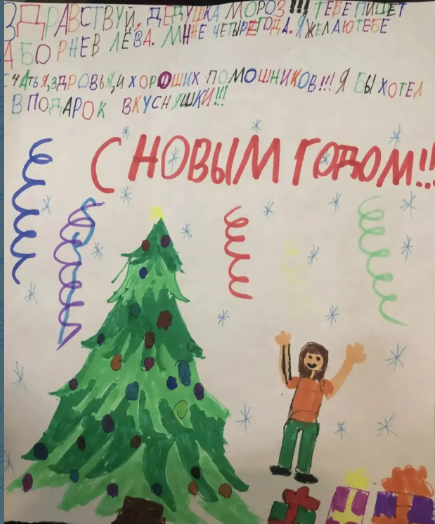 ЗДРАВСТВУЙ, ДЕДУШКА МОРОЗ!!! ТЕБЕ ПИШЕТ
БОРНЕВ ЛЁВА. МННЕ ЧЕТЫРЕ ГОДА. Я ЖЕЛАЮ ТЕБЕ
СЧАТЬЯ, ЗДРОВЬЯ, И ХОРОШИХ ПОМОШНИКОВ!!! Я БЫ ХОТЕЛ
В ПОДАРОК ВКУСНЯШКИ!!!
С НОВЫМ ГОДОМ!!!